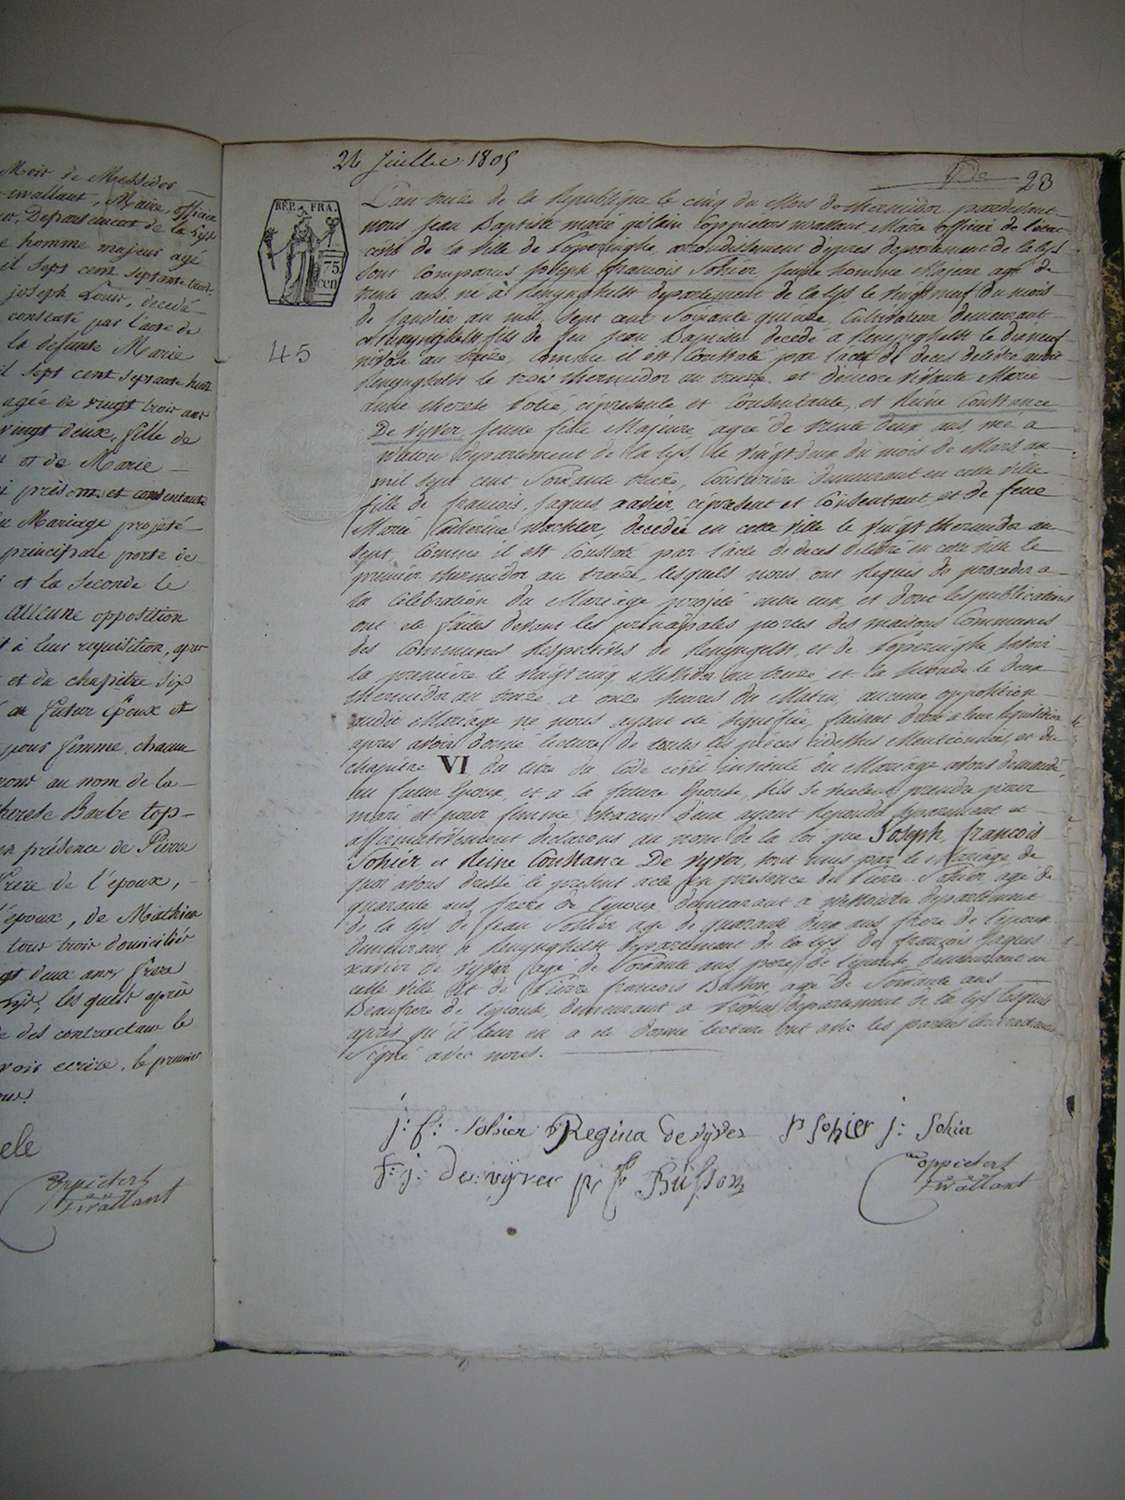 Mois de Messidor
wallant, Maire, officier
Département de la Lys
e homme majeur agé
il sept cent septante
joseph Louis, decedé
constaté par l'acte de
la defunte Marie
il sept cent septante huit
agée de vingt trois ans
vingt deux, fille de
et de Marie
i présent et consentante
Mariage projeté
principale porte de
et la seconde le
aucune opposition
t à leur requisition, apres
et du chapitre six
au futur Epoux et
pour femme, chacun
au nom de la
therese Barbe Top-
en présence de Pierre
frere de l'epoux,
l'époux, de Mathieu
tous trois domiciliés
gt deux ans frere
les quels après
des contractans le
voir ecrire, le premier
ele
Coppietert
Twallant
24 juillet 1805
23
REP. FRA.
75
cen
45
L'an treize de la Republique le cinq du Mois de thermidor pardevant
nous Jean Baptiste marie Coppieters wallant Maire officier de l'etat
civil de la Ville de Poperinghe, arrondissement d'ypres departement de la Lys
sont comparus joseph francois Sohier, jeune homme Majeur agé de
trente ans né à Renynghelst departement de la Lys le vingtneuf du mois
de janvier an mil sept cent soixante quinze Cultivateur demeurant
à Renynghelst fils de feu jean Baptiste decedé à Renynghelst le dixneuf
nivose an treize, comme il est Constaté par l'acte de deces delivré audit
Renynghelst le trois thermidor an treize. et d'encore vivante Marie
anne therese, ci presente et Consentante, et Reine Constance
De Vyver jeune fille Majeure agée de trente deux ans née à
watou departement de la Lys, le vingt deux du mois de Mars an
mil sept cent Soixante treize, Couturiere demeurant en cette ville
fille de francois jaques xavier, cipresent et Consentant, et de feue
Marie Catherine, decedée en cette ville le vingt thermidor an
Sept, Comme il est Constaté par l'acte de deces delivré en cette ville le
premier thermidor an treize, lesquels nous ont Requis de proceder a
la Célébration du Mariage projeté entre eux et dont les publications
ont été faites devant les principales portes des maisons Communes
des Communes Respectives de Renynghelst, et de Poperinghe Savoir
la premiere le vingt cinq Messidor an treize et la seconde le deux
thermidor an treize, a onze heures du Matin, aucune opposition
audit Mariage ne nous ayant été signifiée, faisant droit à leur Requisition
après avoir donné lecture de toutes les pièces cidessus Mentionnées, et du
chapitre VI du titre du Code civil intitulé du Mariage avons demandé
au futur Epoux, et a la future Epouse, s'ils se veulent prendre pour
mari et pour femme, chacun d'eux ayant repondu separement et
affirmativement declarons au nom de la loi que Joseph francois
Sohier et Reine Constance De Vyver, sont unis par le Mariage de
quoi avons dressé le present acte en presence de Pierre Sohier agé de
quarante ans, frere de l'epoux demeurant à departement
de la Lys de Jean Sohier agé de quarante deux ans frere de l'epoux
demeurant à Renynghelst departement de la Lys, de françois jaques
xavier de vyver agé de Soixante ans père de l'epouse demeurant en
cette ville et de Pierre francois agé de Soixante ans
Beaufrere de l'epouse, demeurant à departement de la Lys lesquels
après qu'il leur en a été donné lecture l'ont avec les parties contractantes
Signé avec nous.
j: f: Sohier Regina de vÿver P Sohier j: Sohier
F: j: De: vÿver pr fr Büsson
Coppietert
Twallant